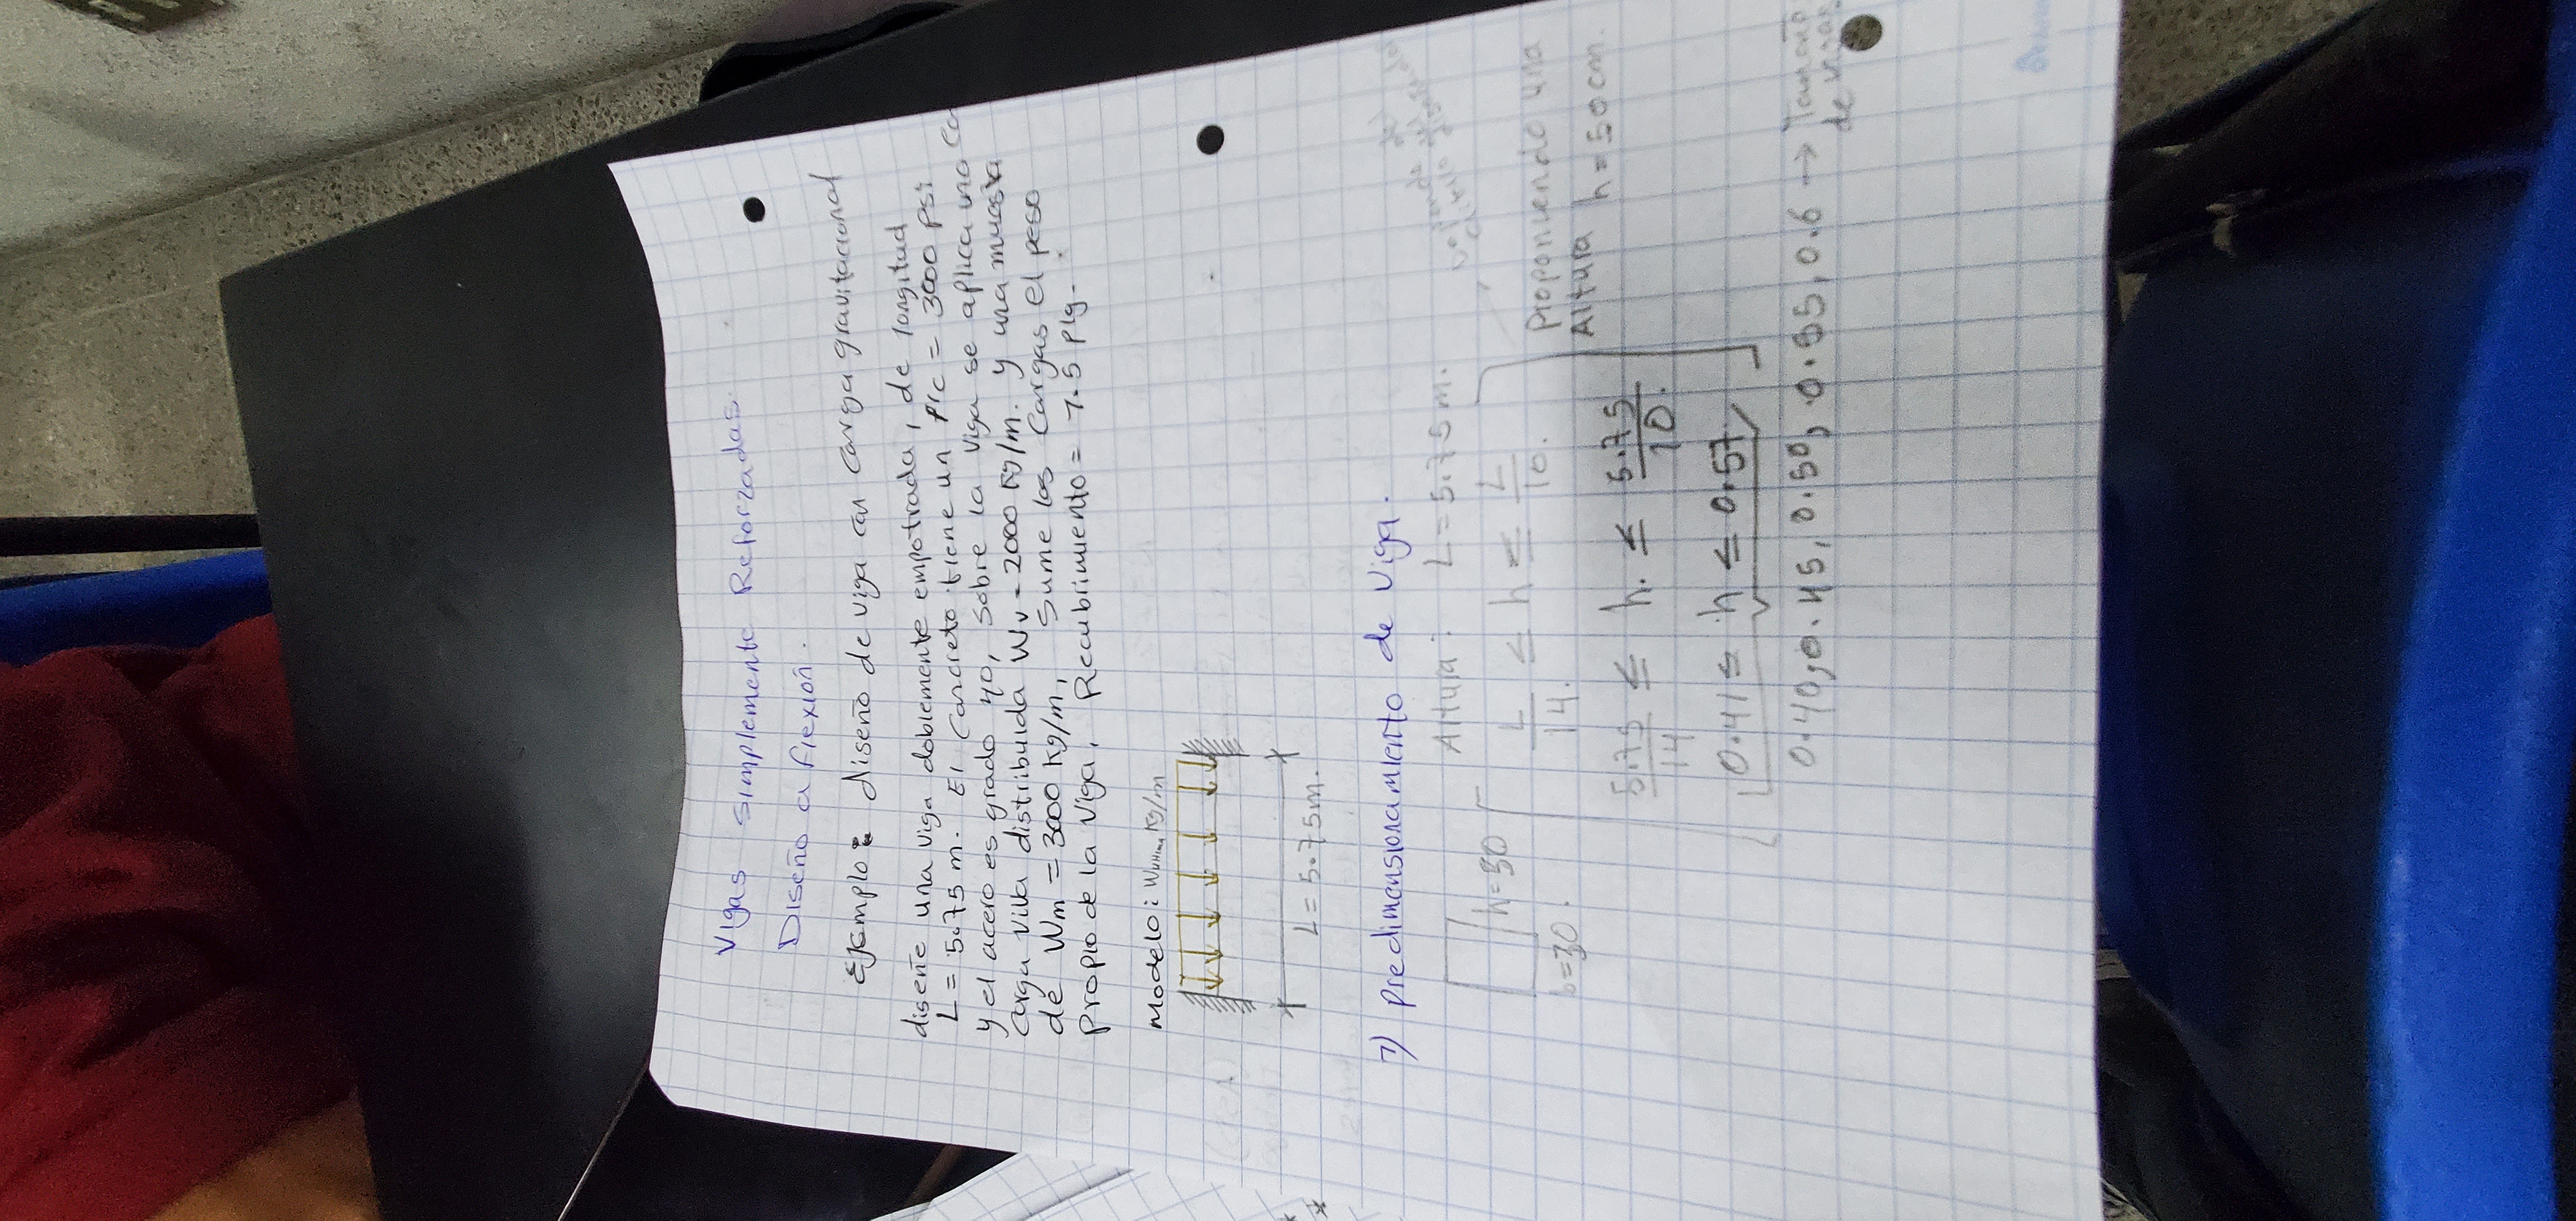 Vigas simplemente Reforzadas.
Diseño a flexión.
Ejemplo: diseño de viga con carga gravitacional
diseñe una viga doblemente empotrada, de longitud
L = 5.75 m. El concreto tiene un f'c = 3000 psi
y el acero es grado 40, sobre la viga se aplica una ca
carga viva distribuida Wv = 2000 Kg/m. y una muerta
de Wm = 3000 Kg/m, sume las cargas el peso
propio de la viga, Recubrimiento = 7.5 plg.
modelo: Wultima Kg/m
L = 5.75m.
1) predimensionamiento de viga.
Altura: L = 5.75 m.
h=50
b=30.
L/14. ≤ h ≤ L/10.
Proponiendo una
Altura h = 50 cm.
5.75/14 ≤ h. ≤ 5.75/10.
0.41 ≤ h ≤ 0.57
0.40, 0.45, 0.50, 0.55, 0.6 → Tamaño
de vigas